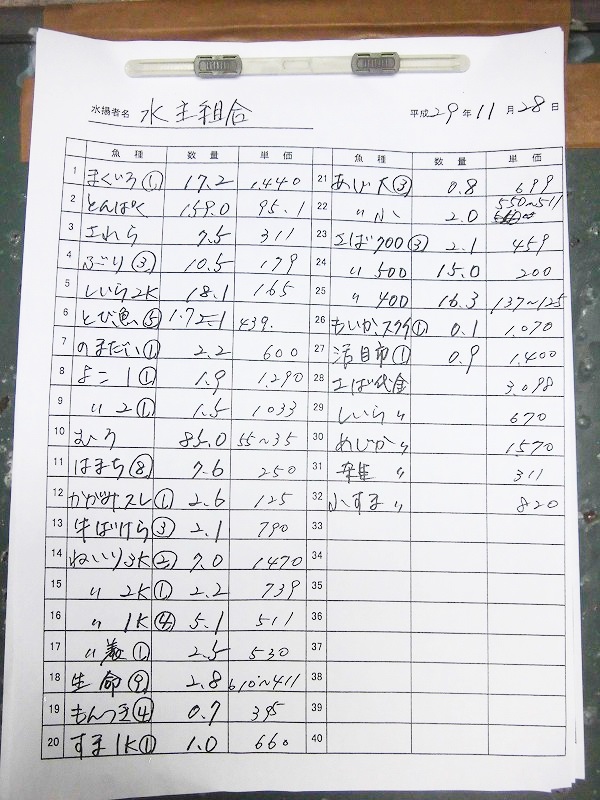 水揚者名 水主組合
平成29年11月28日
魚種 数量 単価
1 まぐろ① 17.2 1,440
2 とんぱく 159.0 95.1
3 エれら 7.5 311
4 ぶり③ 10.5 179
5 しいら2K 18.1 165
6 とび魚⑤ 439.
7 のまだい① 2.2 600
8 よこ1① 1.9 1,290
9 〃 2① 1.5 1033
10 むろ 85.0 55~35
11 はまち⑧ 7.6 250
12 かがみスレ① 2.6 125
13 牛ばけら③ 2.1 790
14 ねいり3K② 7.0 1470
15 〃 2K① 2.2 739
16 〃 1K④ 5.1 511
17 〃 ① 2.5 530
18 生命⑨ 2.8 610~411
19 もんつき④ 0.7 395
20 すま1K① 1.0 660
魚種 数量 単価
21 あじ大③ 0.8 699
22 〃小 2.0 550~511
23 エば700③ 2.1 459
24 〃 500 15.0 200
25 〃 400 16.3 137~125
26 もいか ① 0.1 1.070
27 活目市① 0.9 1.400
28 エば代金 3,098
29 しいら〃 670
30 めじか〃 1570
31 雑〃 311
32 小すま〃 820
33
34
35
36
37
38
39
40